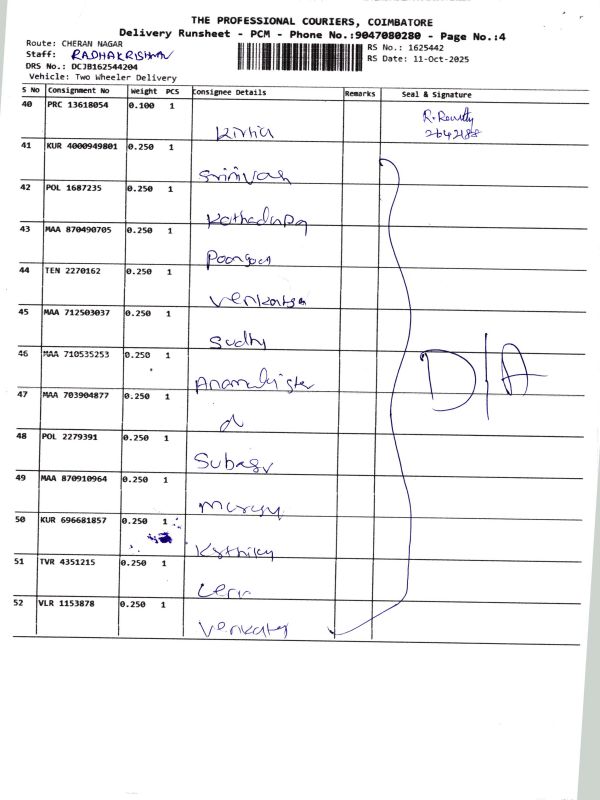 THE PROFESSIONAL COURIERS, COIMBATORE
Delivery Runsheet - PCM - Phone No.:9047080280 - Page No.:4
Route: CHERAN NAGAR
RS No.: 1625442
Staff: RADHAKRISHNAN
RS Date: 11-Oct-2025
DRS No.: DCJB162544204
Vehicle: Two Wheeler Delivery
S No Consignment No Weight PCS Consignee Details Remarks Seal & Signature
40 PRC 13618054 0.100 1
2642188
41 KUR 4000949801 0.250 1
Srinivash
42 POL 1687235 0.250 1
43 MAA 870490705 0.250 1
44 TEN 2270162 0.250 1
45 MAA 712503037 0.250 1
Sudhy
46 MAA 710535253 0.250 1
D/A
47 MAA 703904877 0.250 1
48 POL 2279391 0.250 1
49 MAA 870910964 0.250 1
50 KUR 696681857 0.250 1
51 TVR 4351215 0.250 1
52 VLR 1153878 0.250 1